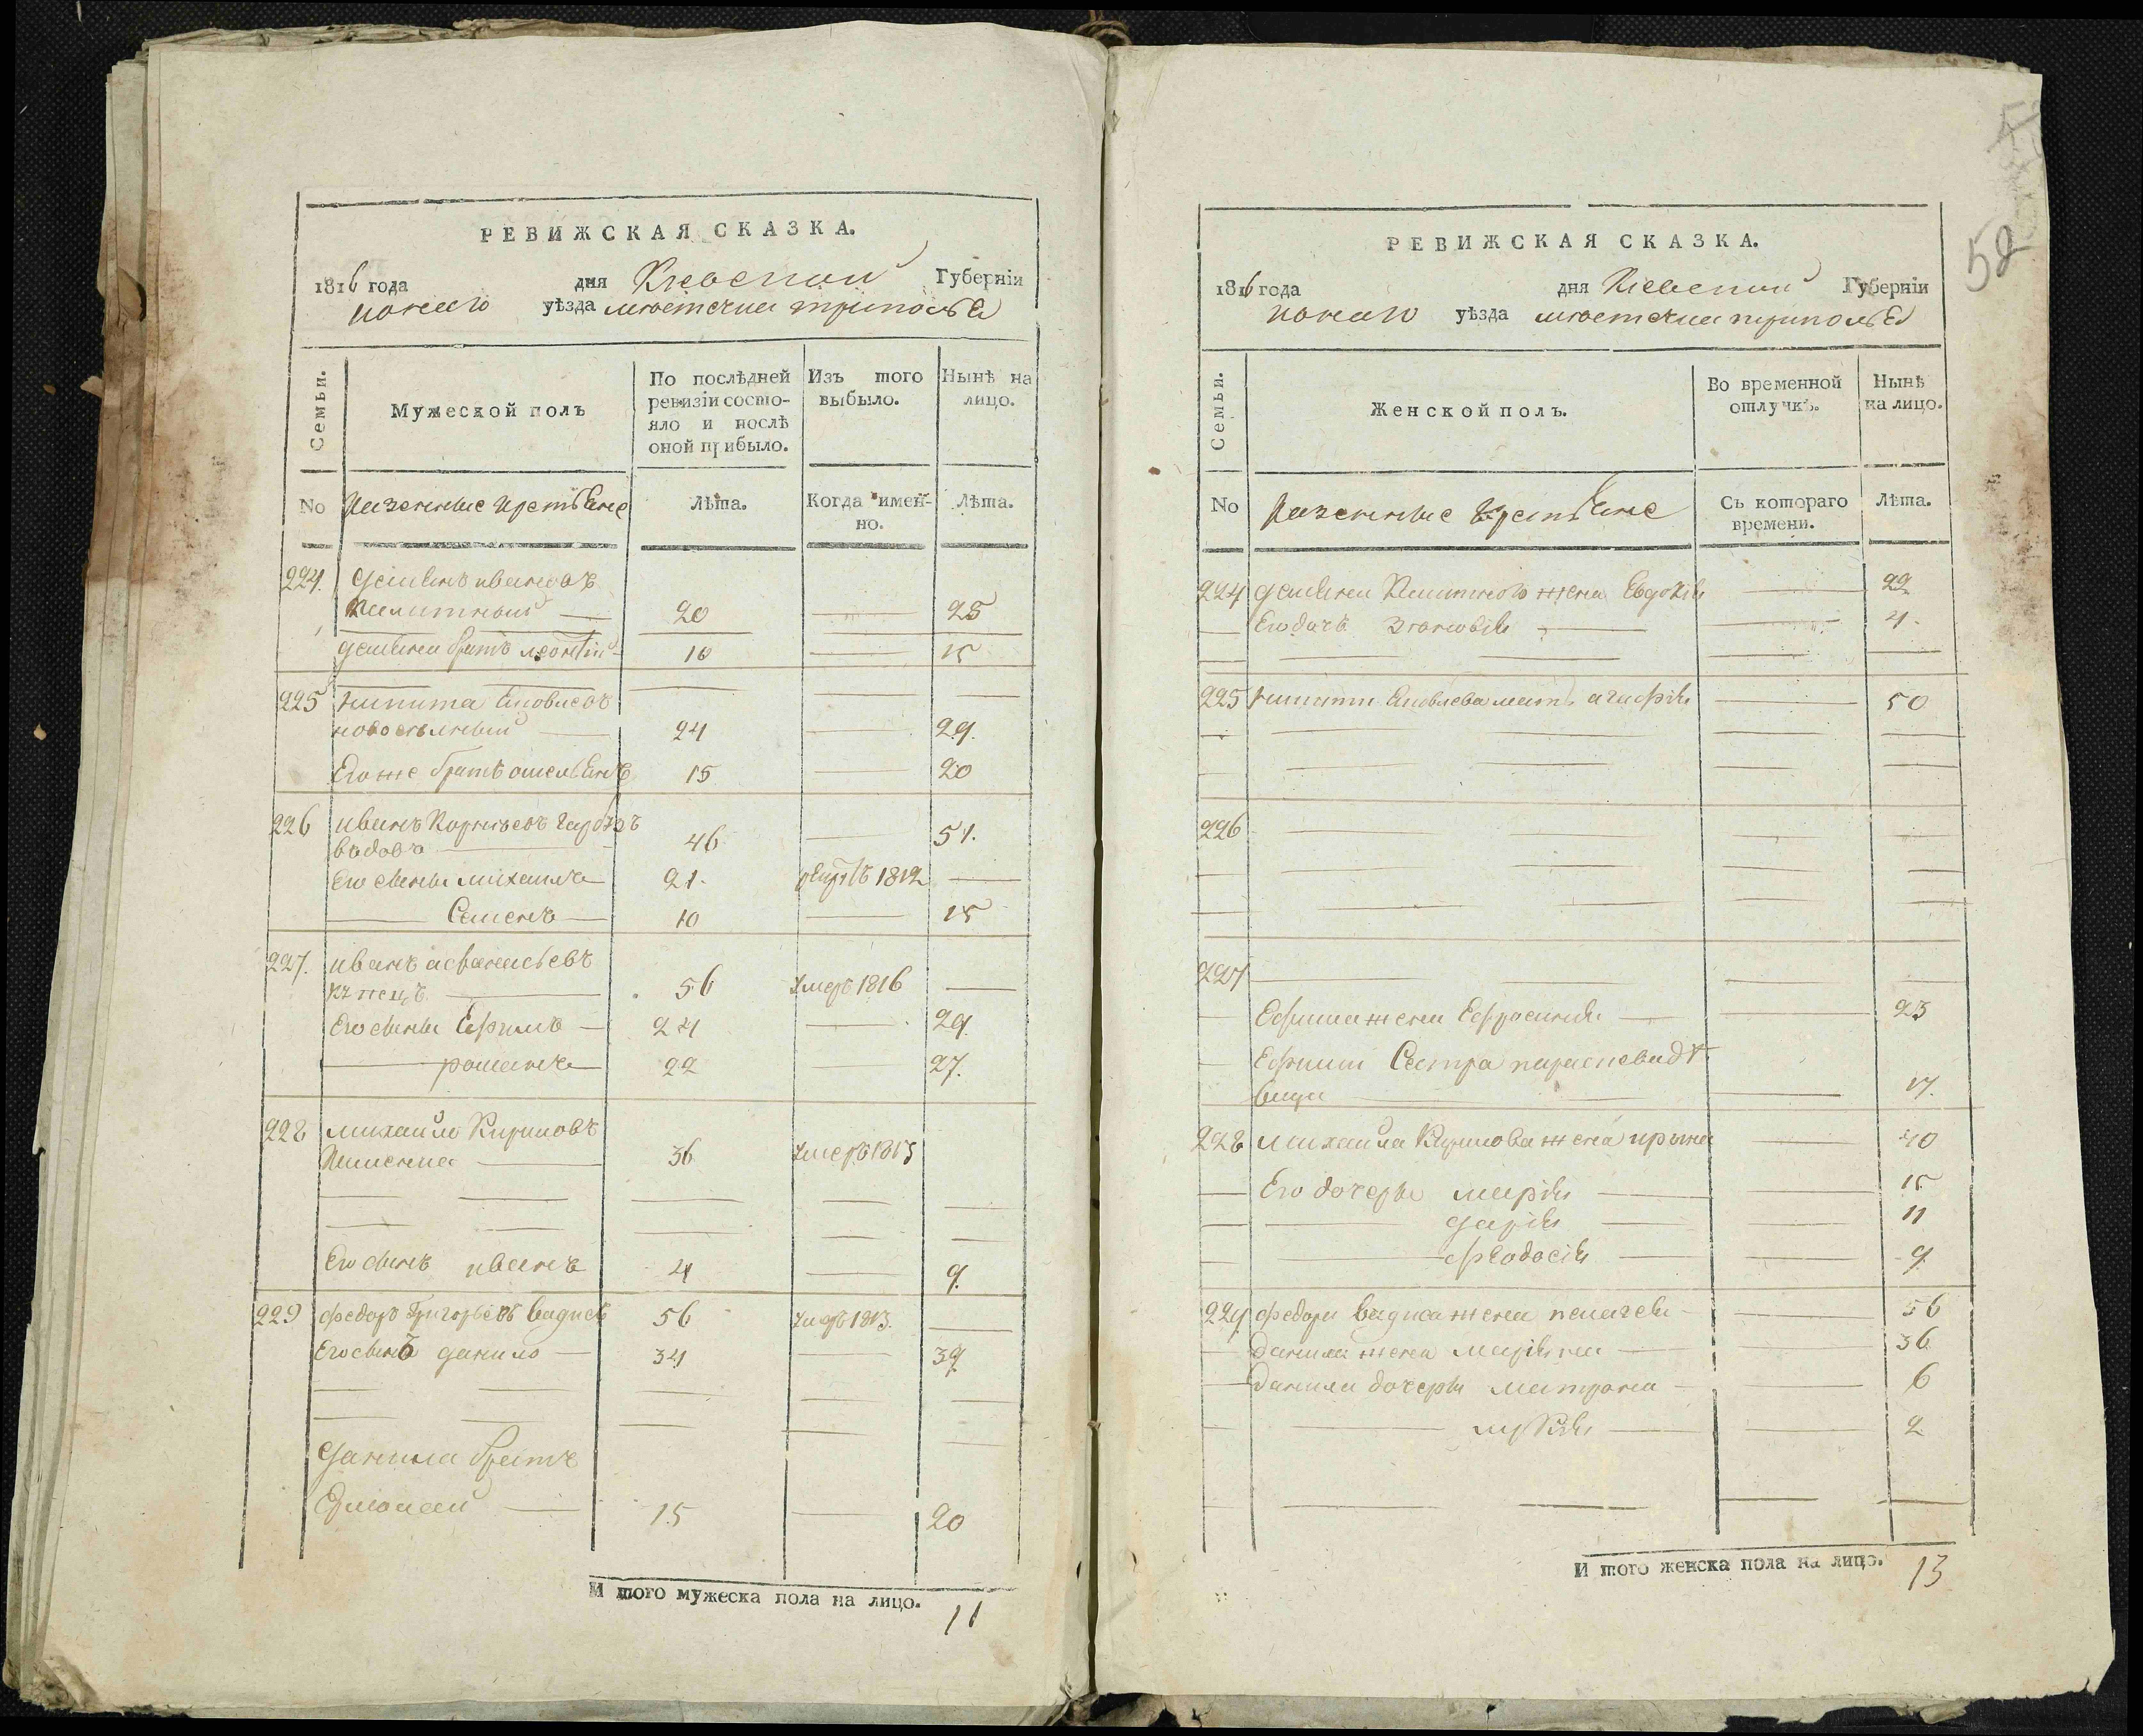 РЕВИЖСКАЯ СКАЗКА.
1816 года дня Киевской Губерніи
уѣзда местечка триполья
Семьи.
Мужеской полъ
По послѣдней ревизіи состояло и послѣ оной прибыло.
Изъ того выбыло.
Нынѣ на лицо.
No Казенные крестьяне
Лѣта.
Когда именно.
Лѣта.
224. демьянъ ивановъ
20 25
демьяна братъ леонтій 10 15
225 никита яковлевъ
24 29.
Его же братъ омельянъ 15 20
226 иванъ Корнѣевъ
вдовъ 46 51.
Его сыны михаилъ 21. 1812
Семенъ 10 15
227. иванъ афанасьевъ
56 умеръ 1816
Его сыны Ефимъ 24 29.
романъ 22 27.
228 михайло Кириловъ
36 умеръ 1815
Его сынъ иванъ 4 9.
229 федоръ Григорьевъ 56 умеръ 1813.
Его сынъ данило 34 39
данила братъ
15 20
И того мужеска пола на лицо. 11
52
РЕВИЖСКАЯ СКАЗКА.
1816 года дня Киевской Губерніи
уѣзда местечка триполья
Семьи.
Женской полъ.
Во временной отлучкѣ.
Нынѣ на лицо.
No Казенные крестьяне
Съ котораго времени.
Лѣта.
224 демьяна жена Евдокія 22
Его дочь Зѣновія 4
225 никиты яковлева мать агафія 50
226
227
Ефима жена Ефросинія 23
Ефима Сестра параскева
вица 17.
228 михайла Кирилова жена ирына 40
Его дочеры марія 15
дарія 11
феодосія 9
229 федора жена пелагея 56
данила жена 36
данила дочеры матрона 6
2
И того женска пола на лицо. 13